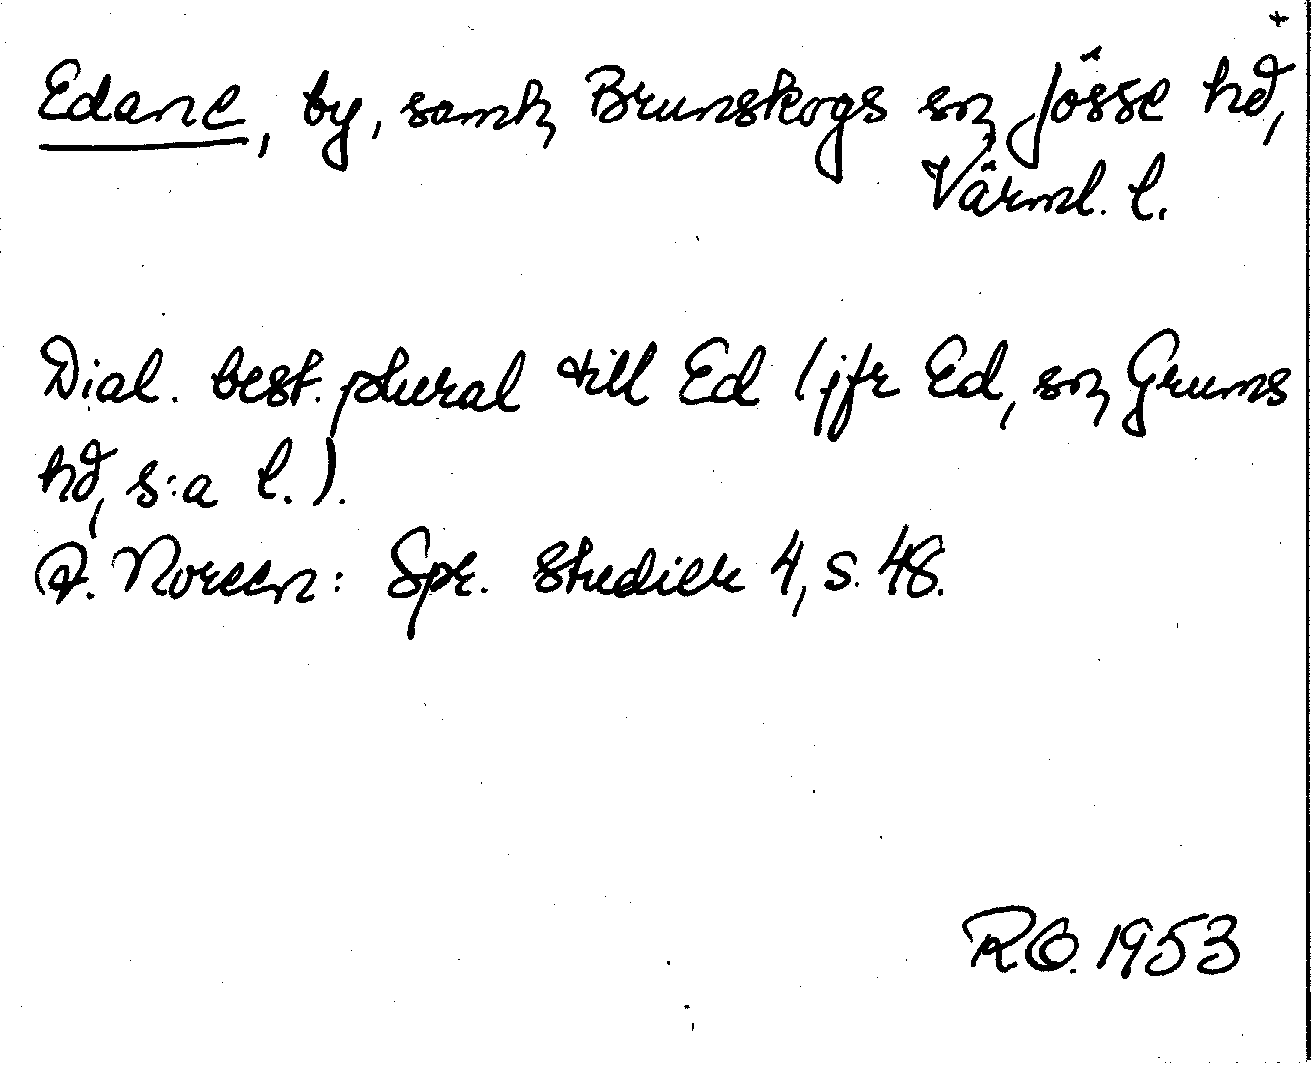 +
Edane, by, samh, Brunskogs sn, Jösse hd,
Värml. l.
Dial. best. plural till Ed (jfr Ed, sn, Grums
hd, s:a l.).
A. Noreen: Spr. studier 4, s. 48.
RO. 1953